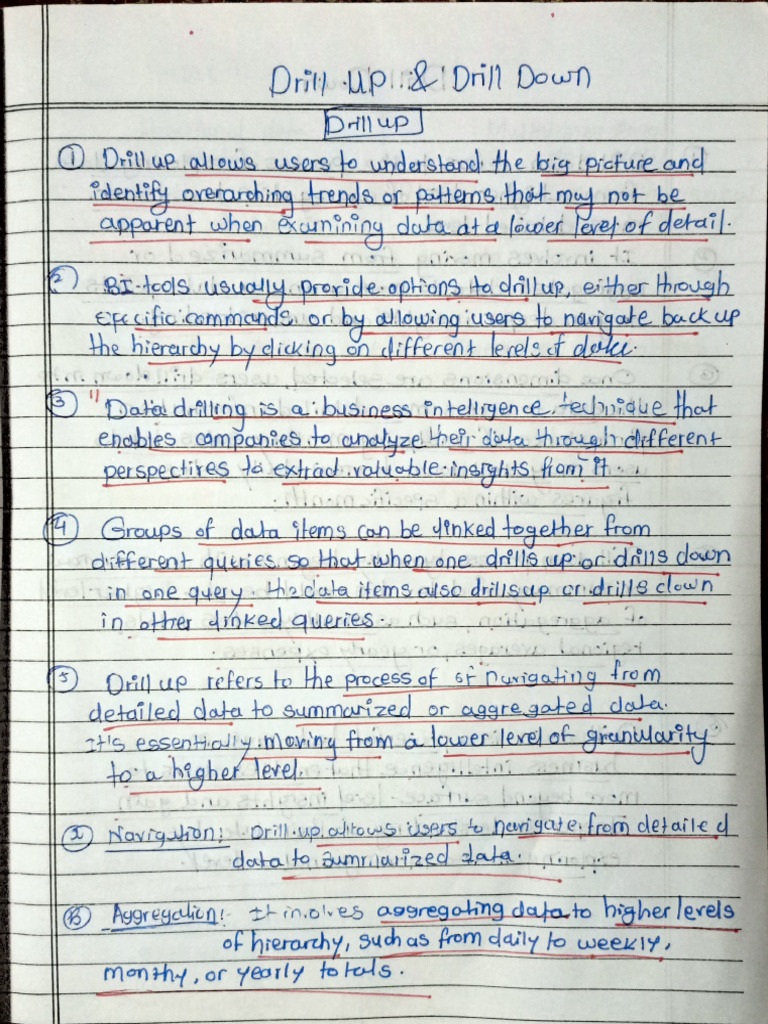 Drill Up & Drill Down
Drill up
① Drill up allows users to understand the big picture and
identify overarching trends or patterns that may not be
apparent when examining data at a lower level of detail.
② BI tools usually provide options to drill up, either through
specific commands or by allowing users to navigate back up
the hierarchy by clicking on different levels of data.
③ Data drilling is a business intelligence technique that
enables companies to analyze their data through different
perspectives to extract valuable insights from it
④ Groups of data items can be linked together from
different queries so that when one drills up or drills down
in one query. the data items also drills up or drills down
in other linked queries.
⑤ Drill up refers to the process of of navigating from
detailed data to summarized or aggregated data.
It's essentially moving from a lower level of granularity
to a higher level.
Navigation: Drill up allows users to navigate from detailed
data to summarized data.
Aggregation:- It involves aggregating data to higher levels
of hierarchy, such as from daily to weekly,
monthy, or yearly totals.